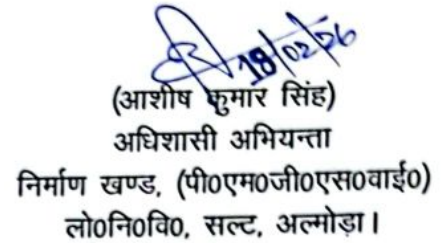 18/02/26
(आशीष कुमार सिंह)
अधिशासी अभियन्ता
निर्माण खण्ड, (पी०एम०जी०एस०वाई०)
लो०नि०वि०, सल्ट, अल्मोड़ा।